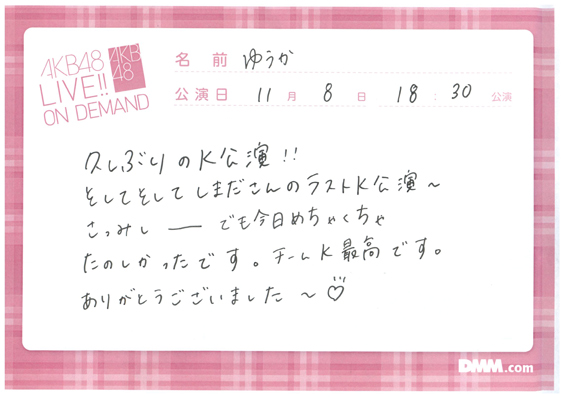 AKB48
LIVE!!
ON DEMAND
AKB
48
名前 ゆうか
公演日 11月 8日 18:30 公演
久しぶりのK公演!!
そしてそしてしまださんのラストK公演~
さっみしーーでも今日めちゃくちゃ
たのしかったです。チームK最高です。
ありがとうございました~♡
DMM.com